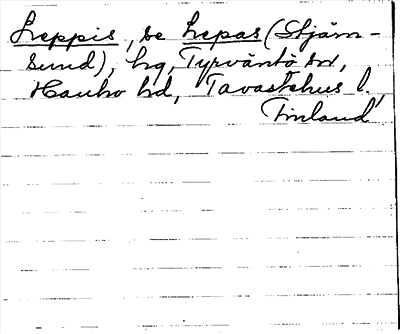 Leppis, se Lepas (Stjärn-
sund), hg, Tyrväntö sn,
Hauho hd, Tavastehus l.,
Finland